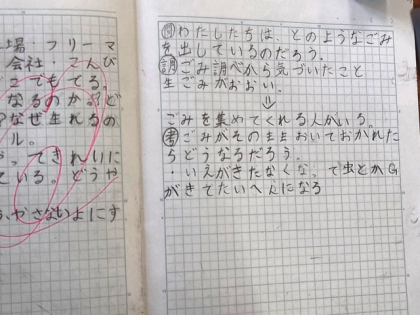 場・フリーマ
会社・こんび
どこでもでる。
なるのか？ど
なぜ生れるの
ル。
って きれいに
ている。どうや
やさないよにす
問わたしたちは、どのようなごみ
を出しているのだろう。
調ごみ調べから気づいたこと
生ごみがおおい。
⇓
ごみを集めてくれる人がいる。
考ごみがそのままおいておかれた
らどうなるだろう。
・いえがきたなくな。で虫とかG
がきてたいへんになる